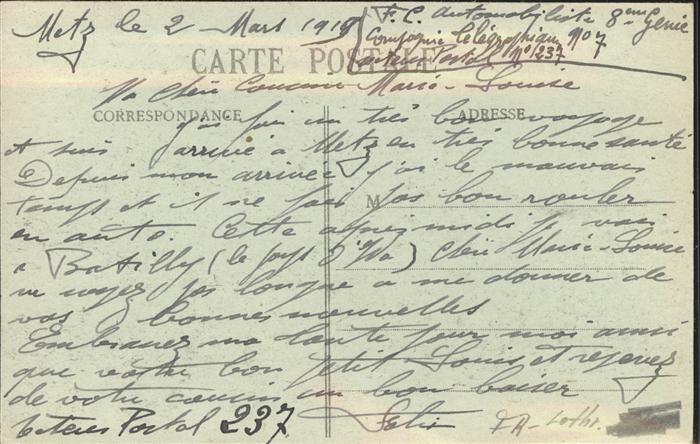 Metz le 2 Mars 1919
F. C. Automobiliste 8eme Génie
Compagnie Télégraphique No 7
Secteur Postal No 237
CARTE POSTALE
Ma Chère Cousine Marie-Louise
CORRESPONDANCE
ADRESSE
J'ai fai un très bon voyage
et suis arrivé à Metz en très bonne santé
Depuis mon arrivée j'ai le mauvais
temps et il ne fai pas bon rouler
M
en auto. Cette après midi je vais
a Batilly (le pays d'Ida) Chère Marie-Louise
ne soyez pas longue a me donner de
vos bonnes nouvelles
Embrassez ma tante pour moi ainsi
que votre bon petit Louis et recevez
de votre cousin un bon baiser
Secteur Postal 237
Felix
FR - Lothr.